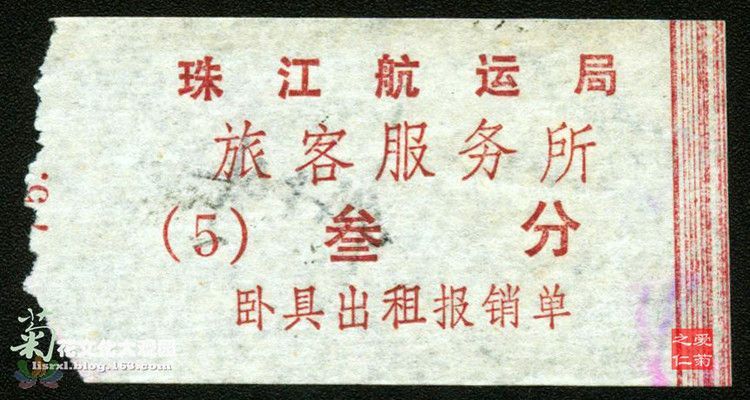 珠江航运局
旅客服务所
(5) 叁分
卧具出租报销单
75.
菊花文化大观园
lisrxl.blog.163.com
爱菊
之仁